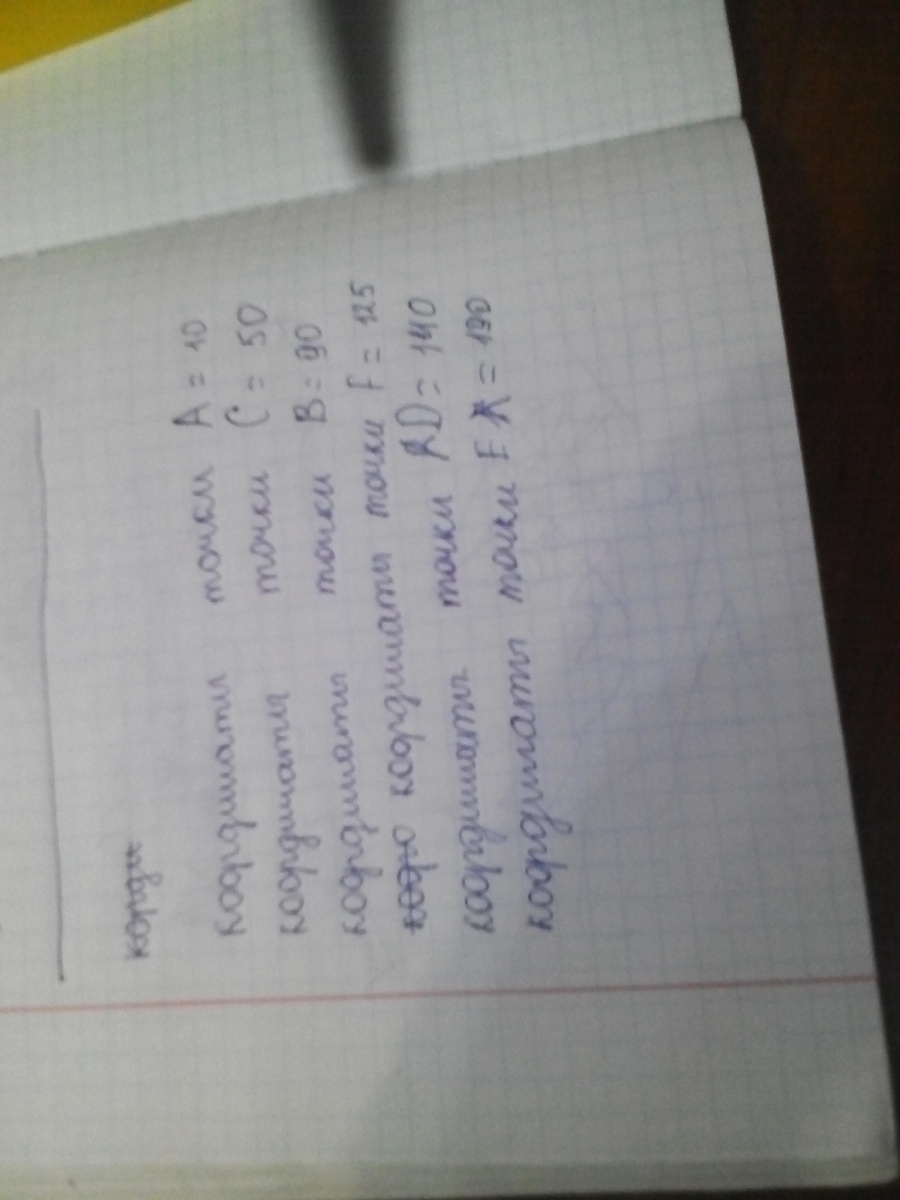 корди
Координаты точки A = 10
координаты точки C = 50
координаты точки B = 90
коро координаты точки F = 125
координаты точки D = 140
координаты точки E = 190